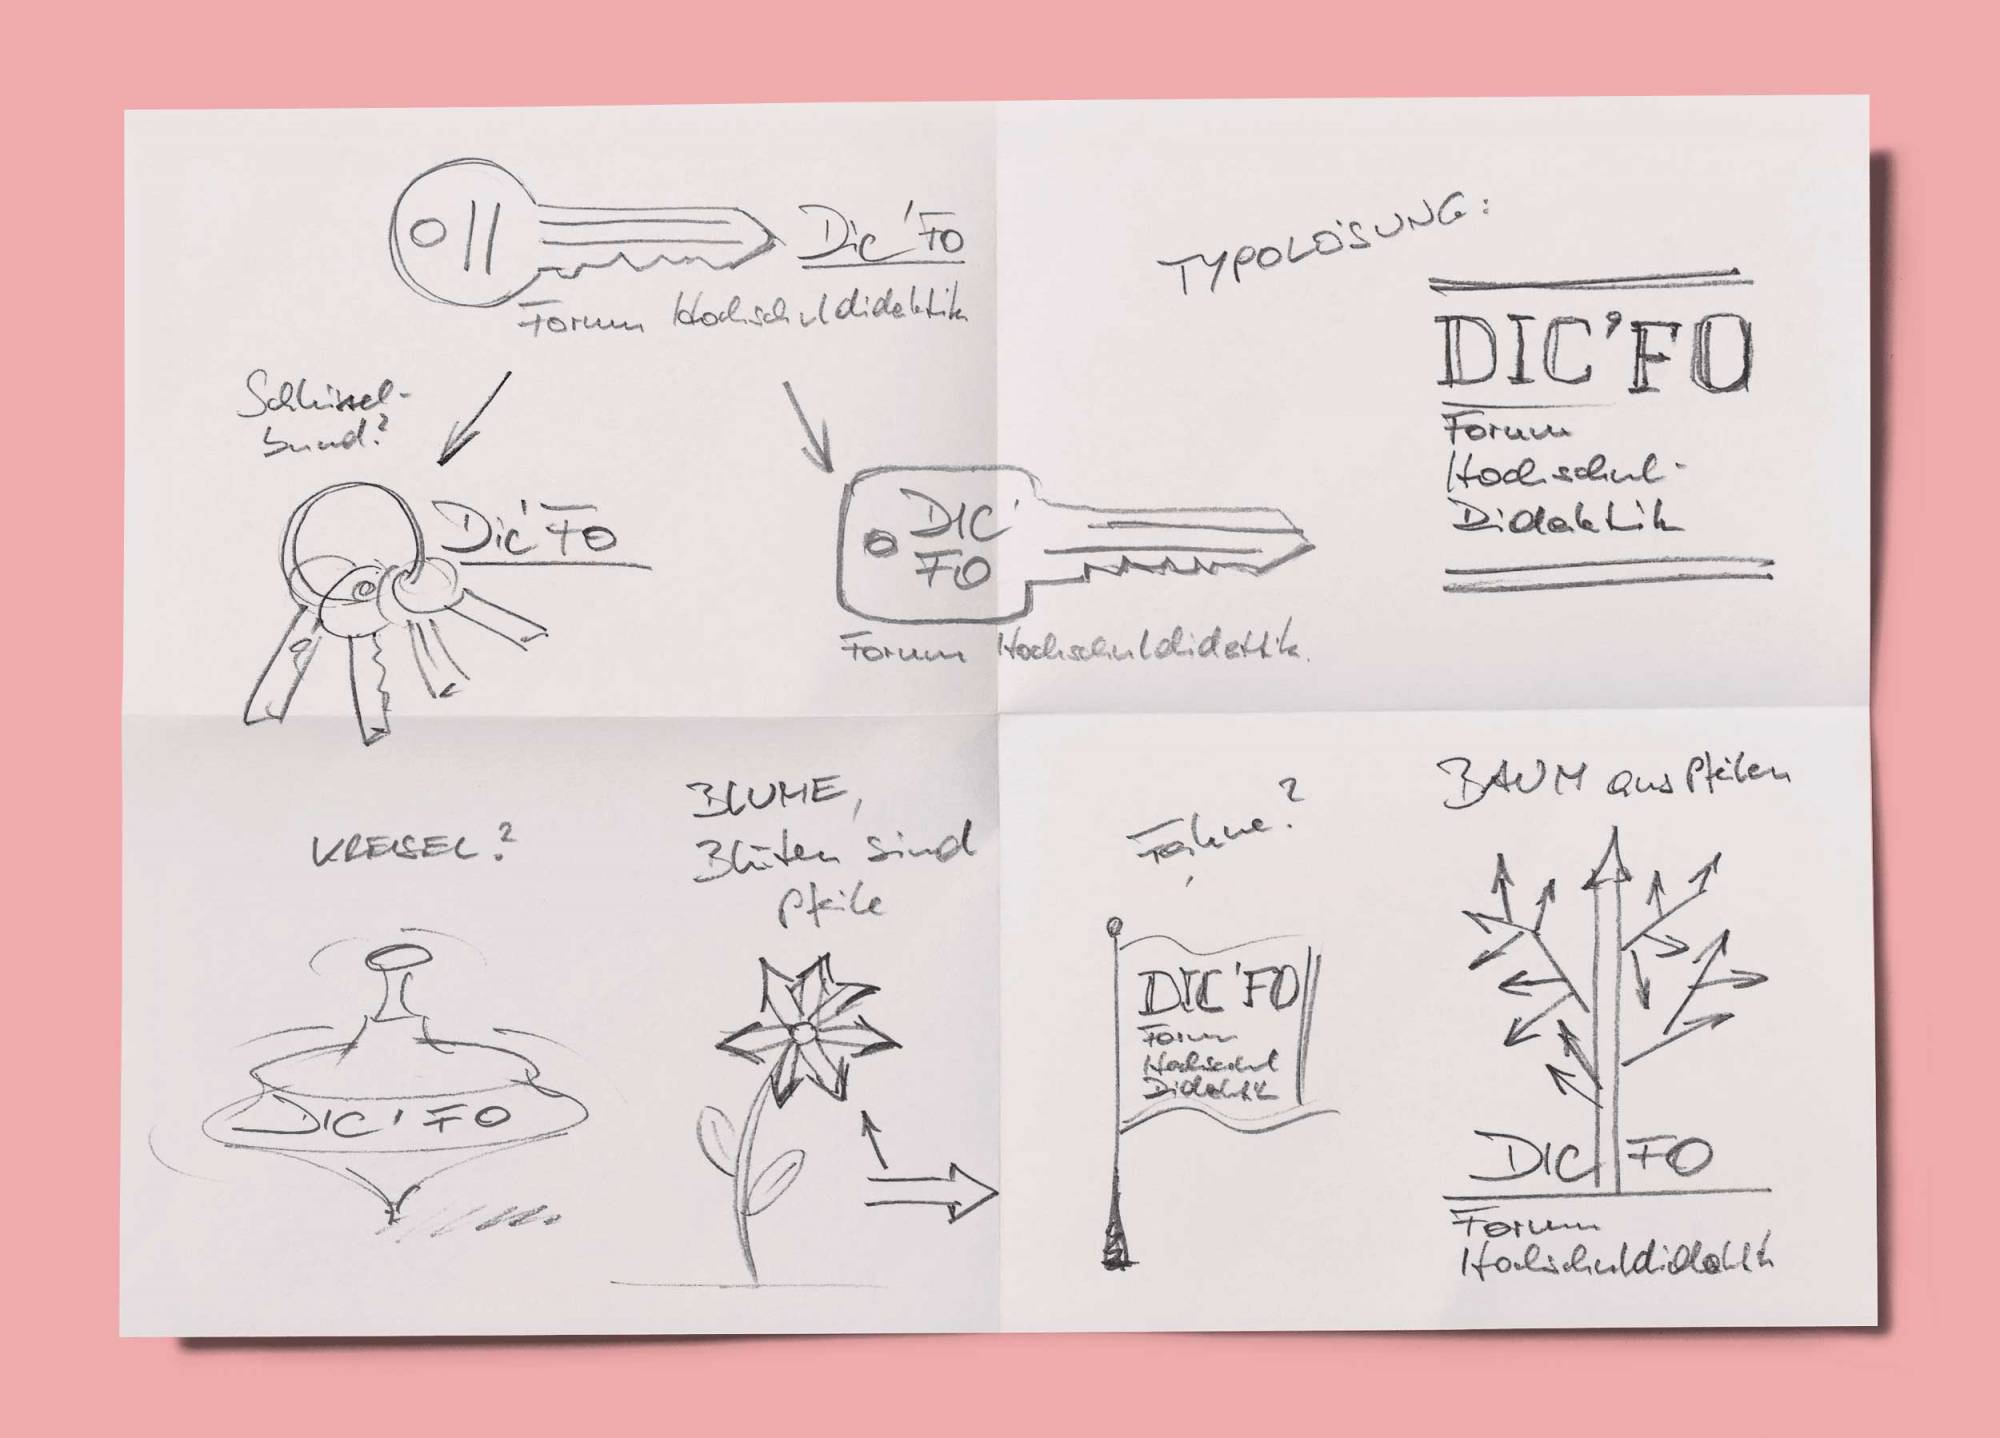 Dic'Fo
Forum Hochschuldidaktik
Schlüssel-
bund?
Dic'Fo
DIC'
FO
Forum Hochschuldidaktik.
TYPOLÖSUNG:
DIC'FO
Forum
Hochschul-
Didaktik
KREISEL?
DIC'FO
BLUME,
Blüten sind
Pfeile
Fahne?
DIC'FO
Forum
Hochschul
Didaktik
BAUM aus Pfeilen
DIC FO
Forum
Hochschuldidaktik